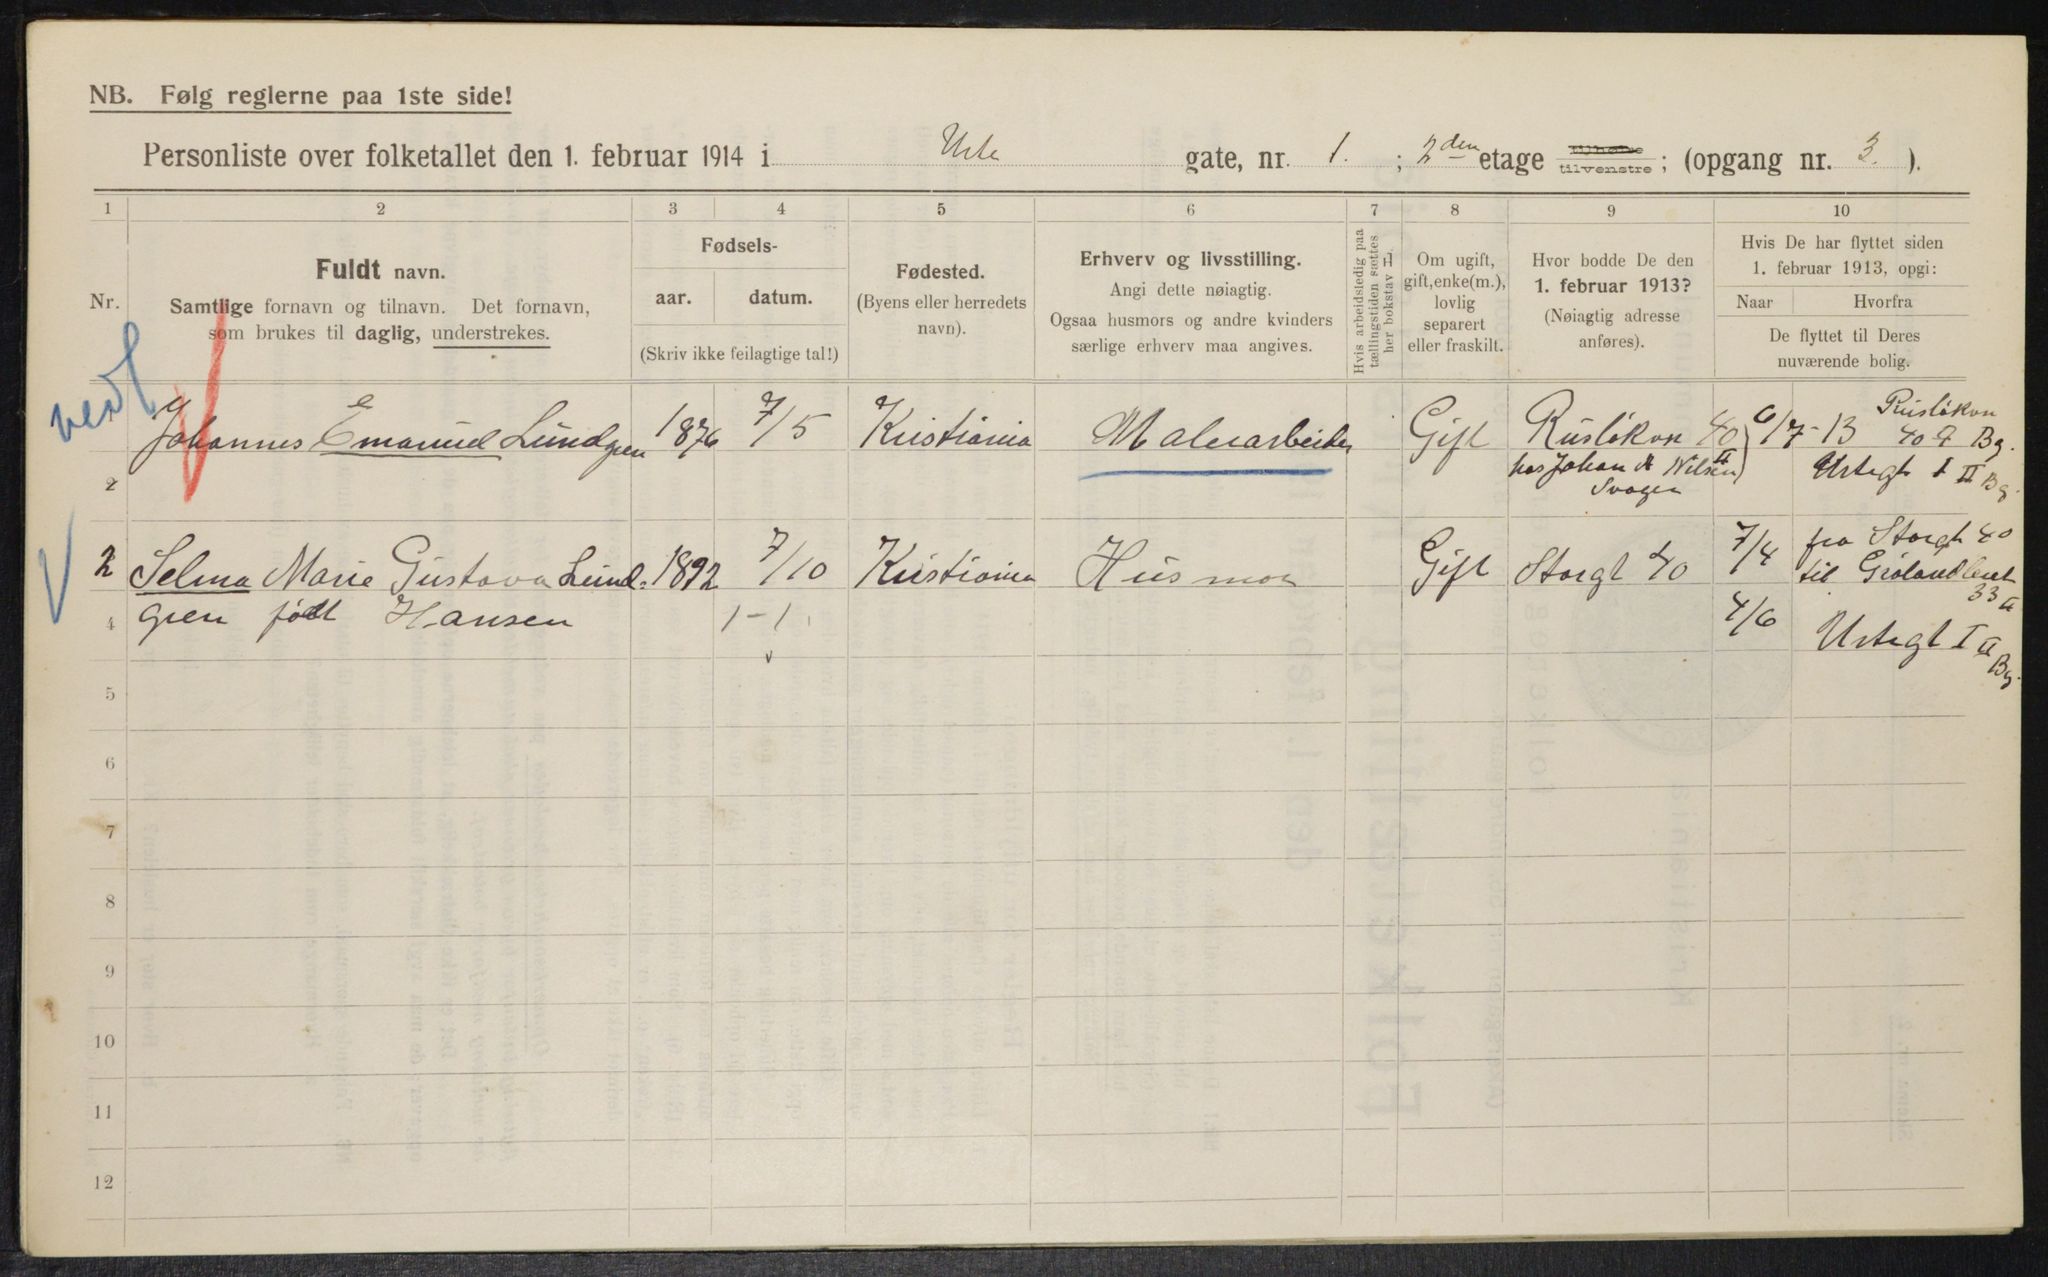 NB. Følg reglerne paa 1ste side!
Personliste over folketallet den 1. februar 1914 i Urte gate, nr. 1. ; 2den etage tilhøire tilvenstre ; (opgang nr. 3. ).
1 2 3 4 5 6 7 8 9 10
Nr.
Fuldt navn.
Samtlige fornavn og tilnavn. Det fornavn,
som brukes til daglig, understrekes.
Fødsels-
aar. datum.
(Skriv ikke feilagtige tal!)
Fødested.
(Byens eller herredets
navn).
Erhverv og livsstilling.
Angi dette nøiagtig.
Ogsaa husmors og andre kvinders
særlige erhverv maa angives.
Hvis arbeidsledig paa
tællingstiden sættes
her bokstav l
Om ugift,
gift, enke(m.),
lovlig
separert
eller fraskilt.
Hvor bodde De den
1. februar 1913?
(Nøiagtig adresse
anføres).
Hvis De har flyttet siden
1. februar 1913, opgi:
Naar Hvorfra
De flyttet til Deres
nuværende bolig.
1 Johannes Emanuel Lundgren 1876 7/5 Kristiania Malerarbeider Gift Rusløkvn 40 II 6/7-13 Rusløkvn
40 Bg.
hos Johan A Nilsen Urtegt I II Bg.
Svoger
2
2 Selma Marie Gustava Lund- 1892 7/10 Kristiania Husmor Gift Storgt 40 7/4 fra Storgt 40
til Grølandleret
33 II
4 gren født Hansen 1-1. 4/6 Urtegt I II Bg.
5
6
7
8
9
10
11
12